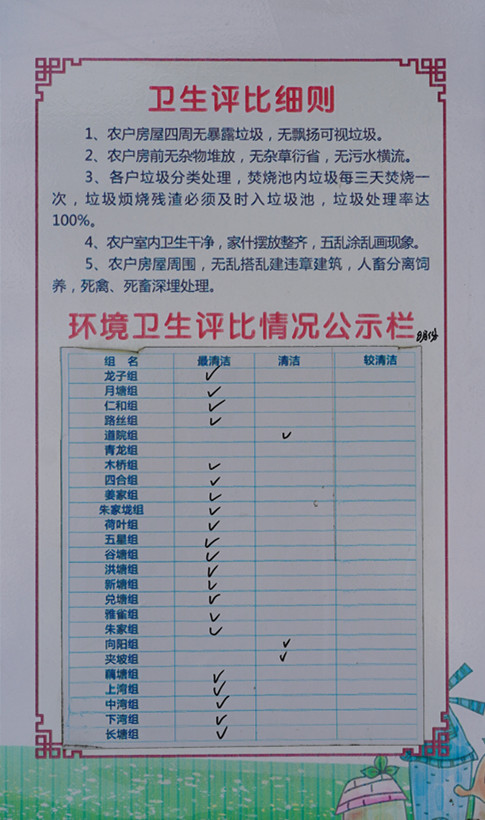 卫生评比细则
1、农户房屋四周无暴露垃圾，无飘扬可视垃圾。
2、农户房前无杂物堆放，无杂草衍省，无污水横流。
3、各户垃圾分类处理，焚烧池内垃圾每三天焚烧一
次，垃圾烦烧残渣必须及时入垃圾池，垃圾处理率达
100%。
4、农户室内卫生干净，家什摆放整齐，五乱涂乱画现象。
5、农户房屋周围，无乱搭乱建违章建筑，人畜分离饲
养，死禽、死畜深埋处理。
环境卫生评比情况公示栏 8月份
组 名 最清洁 清洁 较清洁
龙子组 ✓
月塘组 ✓
仁和组 ✓
路丝组 ✓
道院组 ✓
青龙组
木桥组 ✓
四合组 ✓
姜家组 ✓
朱家垅组 ✓
荷叶组 ✓
五星组 ✓
谷塘组 ✓
洪塘组 ✓
新塘组 ✓
兑塘组 ✓
雅雀组 ✓
朱家组 ✓
向阳组 ✓
夹坡组 ✓
藕塘组 ✓
上湾组 ✓
中湾组 ✓
下湾组 ✓
长塘组 ✓